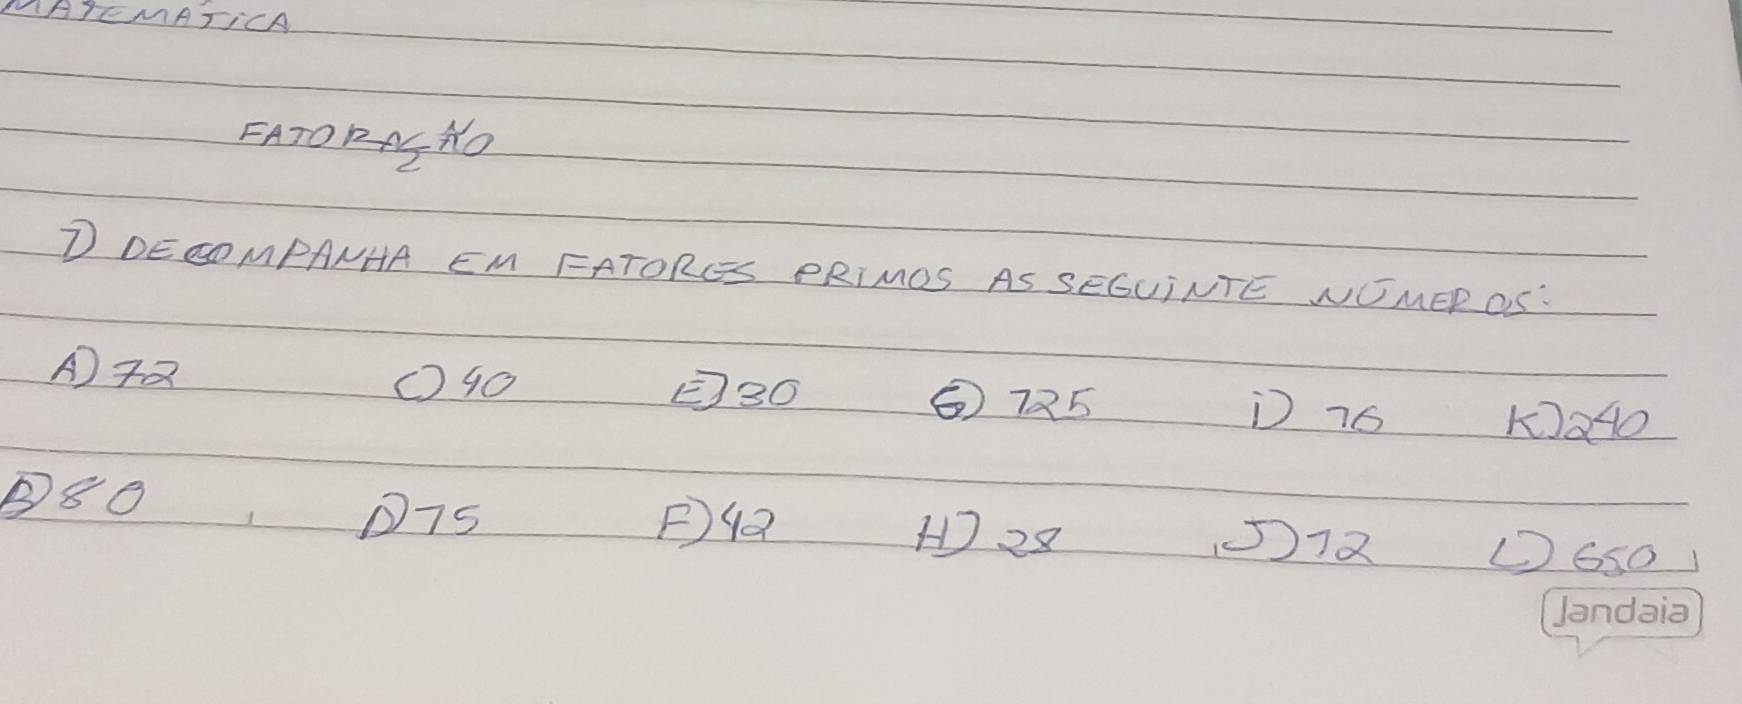 MATEMÁTICA
FATORAÇÃO
1) DECOMPANHA EM FATORES PRIMOS AS SEGUINTE NÚMEROS:
A) 72 C) 40 E) 30 G) 125 i) 16 K) 240
B) 80 D) 15 F) 42 H) 28 J) 12 L) 650
Jandaia